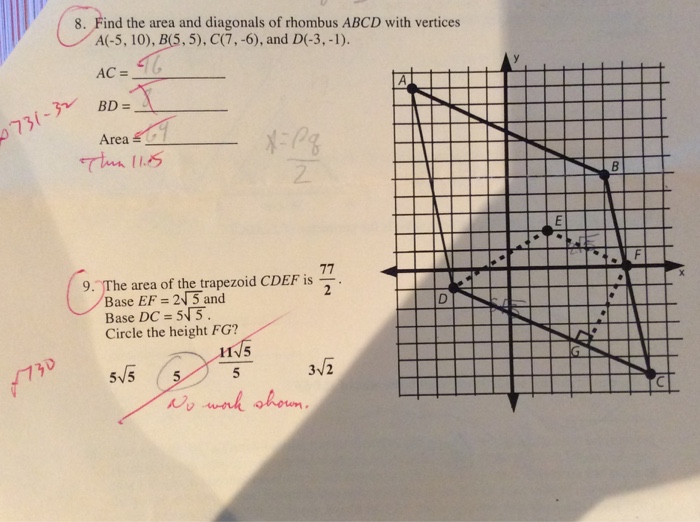 8. Find the area and diagonals of rhombus ABCD with vertices
A(-5, 10), B(5, 5), C(7, -6), and D(-3, -1).
AC = 16
BD =
p731-32
Area = 64
Thm 11.5
x = pq/2
9. The area of the trapezoid CDEF is 77/2.
Base EF = 2√5 and
Base DC = 5√5.
Circle the height FG?
p730
5√5 5 11√5/5 3√2
No work shown.
y
A
B
E
F
x
D
G
C